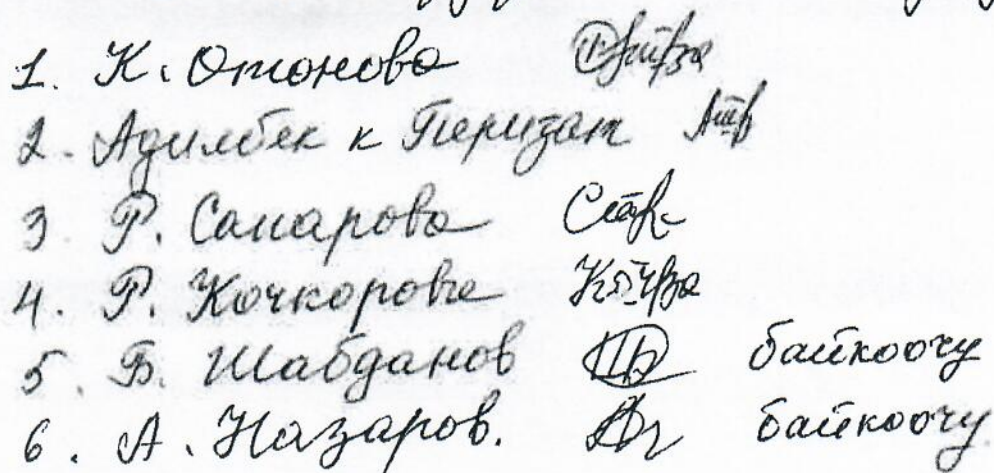 1. К. Отонова
2. Адилбек к Перизат
3. Р. Сапарова
4. Р. Кочкорова
5. Б. Шабданов байкоочу
6. А. Назаров. байкоочу